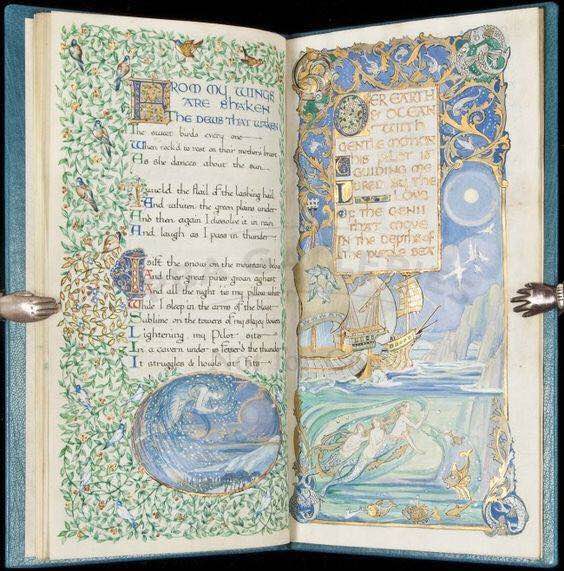 FROM MY WINGS
ARE SHAKEN
THE DEWS THAT WAKEN
The sweet birds every one
When rock'd to rest on their mother's breast
As she dances about the sun
I wield the flail of the lashing hail
And whiten the green plains under
And then again I dissolve it in rain
And laugh as I pass in thunder
I sift the snow on the mountains below
And their great pines groan aghast
And all the night tis my pillow white
While I sleep in the arms of the blast
Sublime on the towers of my skyey bowers
Lightening my Pilot sits
In a cavern under is fetter'd the thunder
It struggles & howls at fits
OER EARTH
OCEAN
WITH
GENTLE MOTION
THIS PILOT IS
GUIDING ME
LURED BY THE
LOVE
OF THE GENII
THAT MOVE
IN THE DEPTHS OF
THE PURPLE SEA